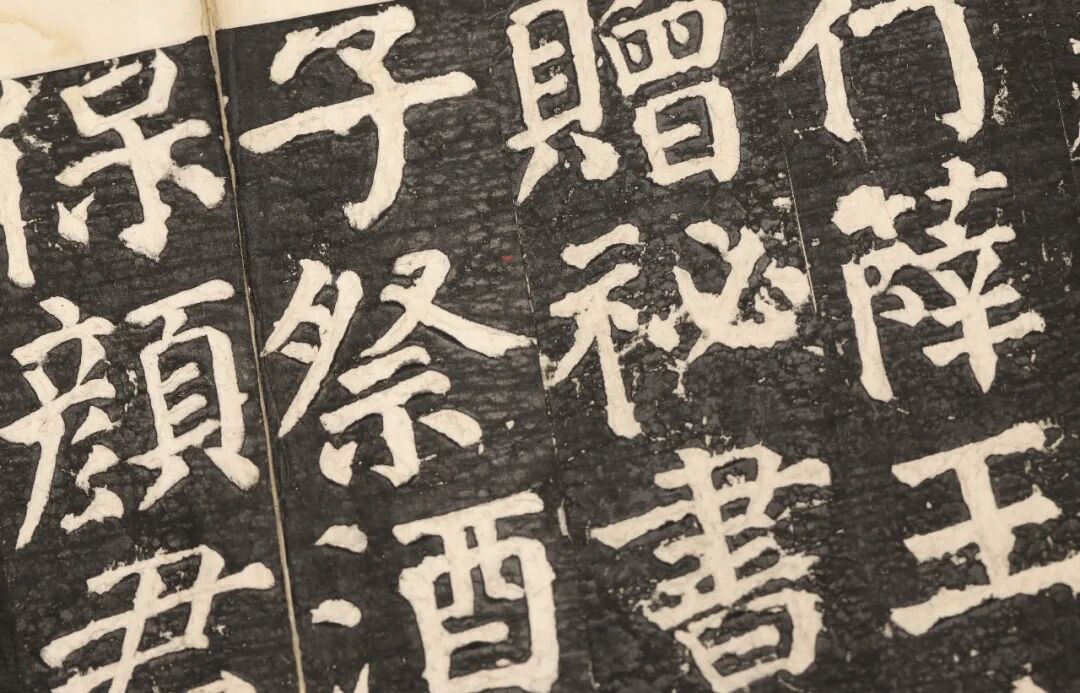 行薛王
贈祕書
子祭酒
保顏君